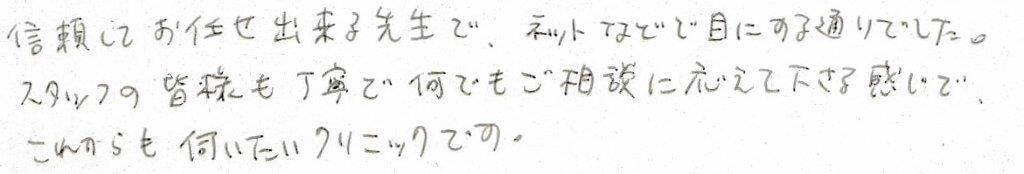 信頼してお任せ出来る先生で、ネットなどで目にする通りでした。
スタッフの皆様も丁寧で何でもご相談に応えて下さる感じで、
これからも伺いたいクリニックです。